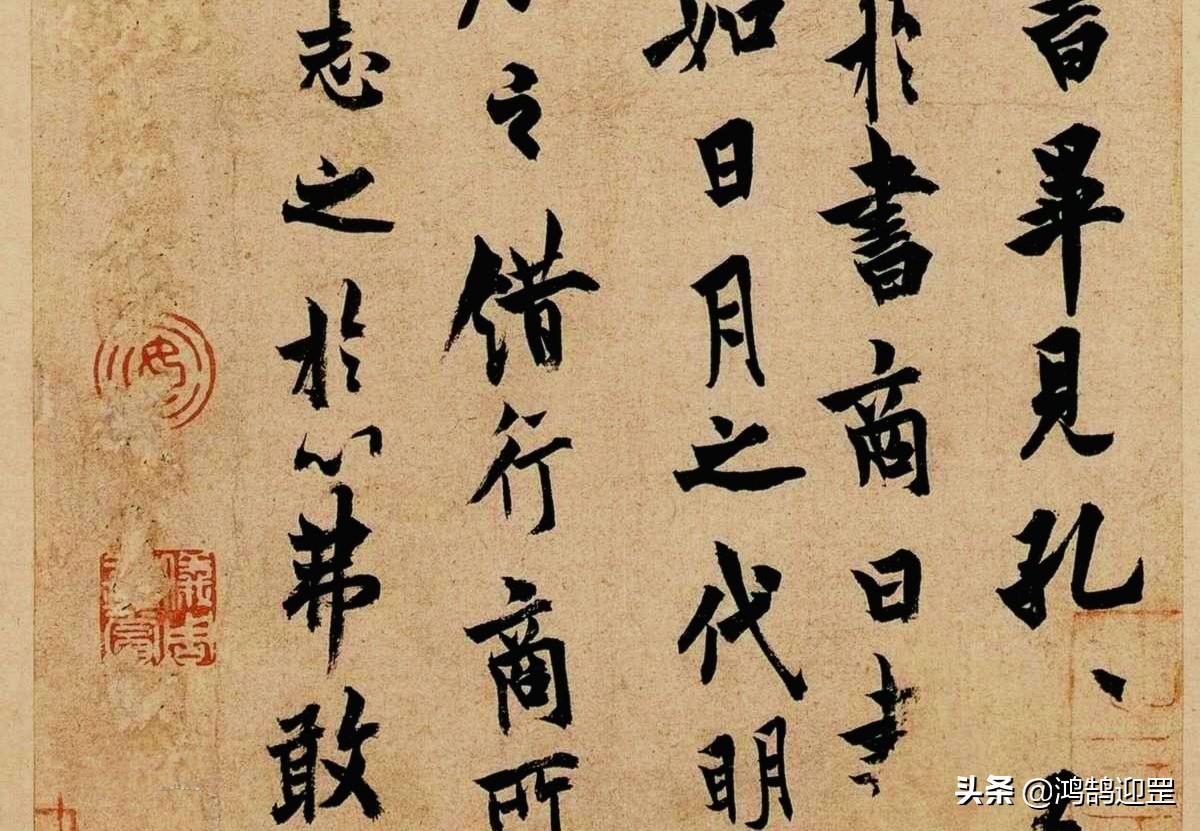 書畢見孔
於書商曰
如日月之代明
之錯行商所
志之於心弗敢
头条 @鸿鹄迎罡